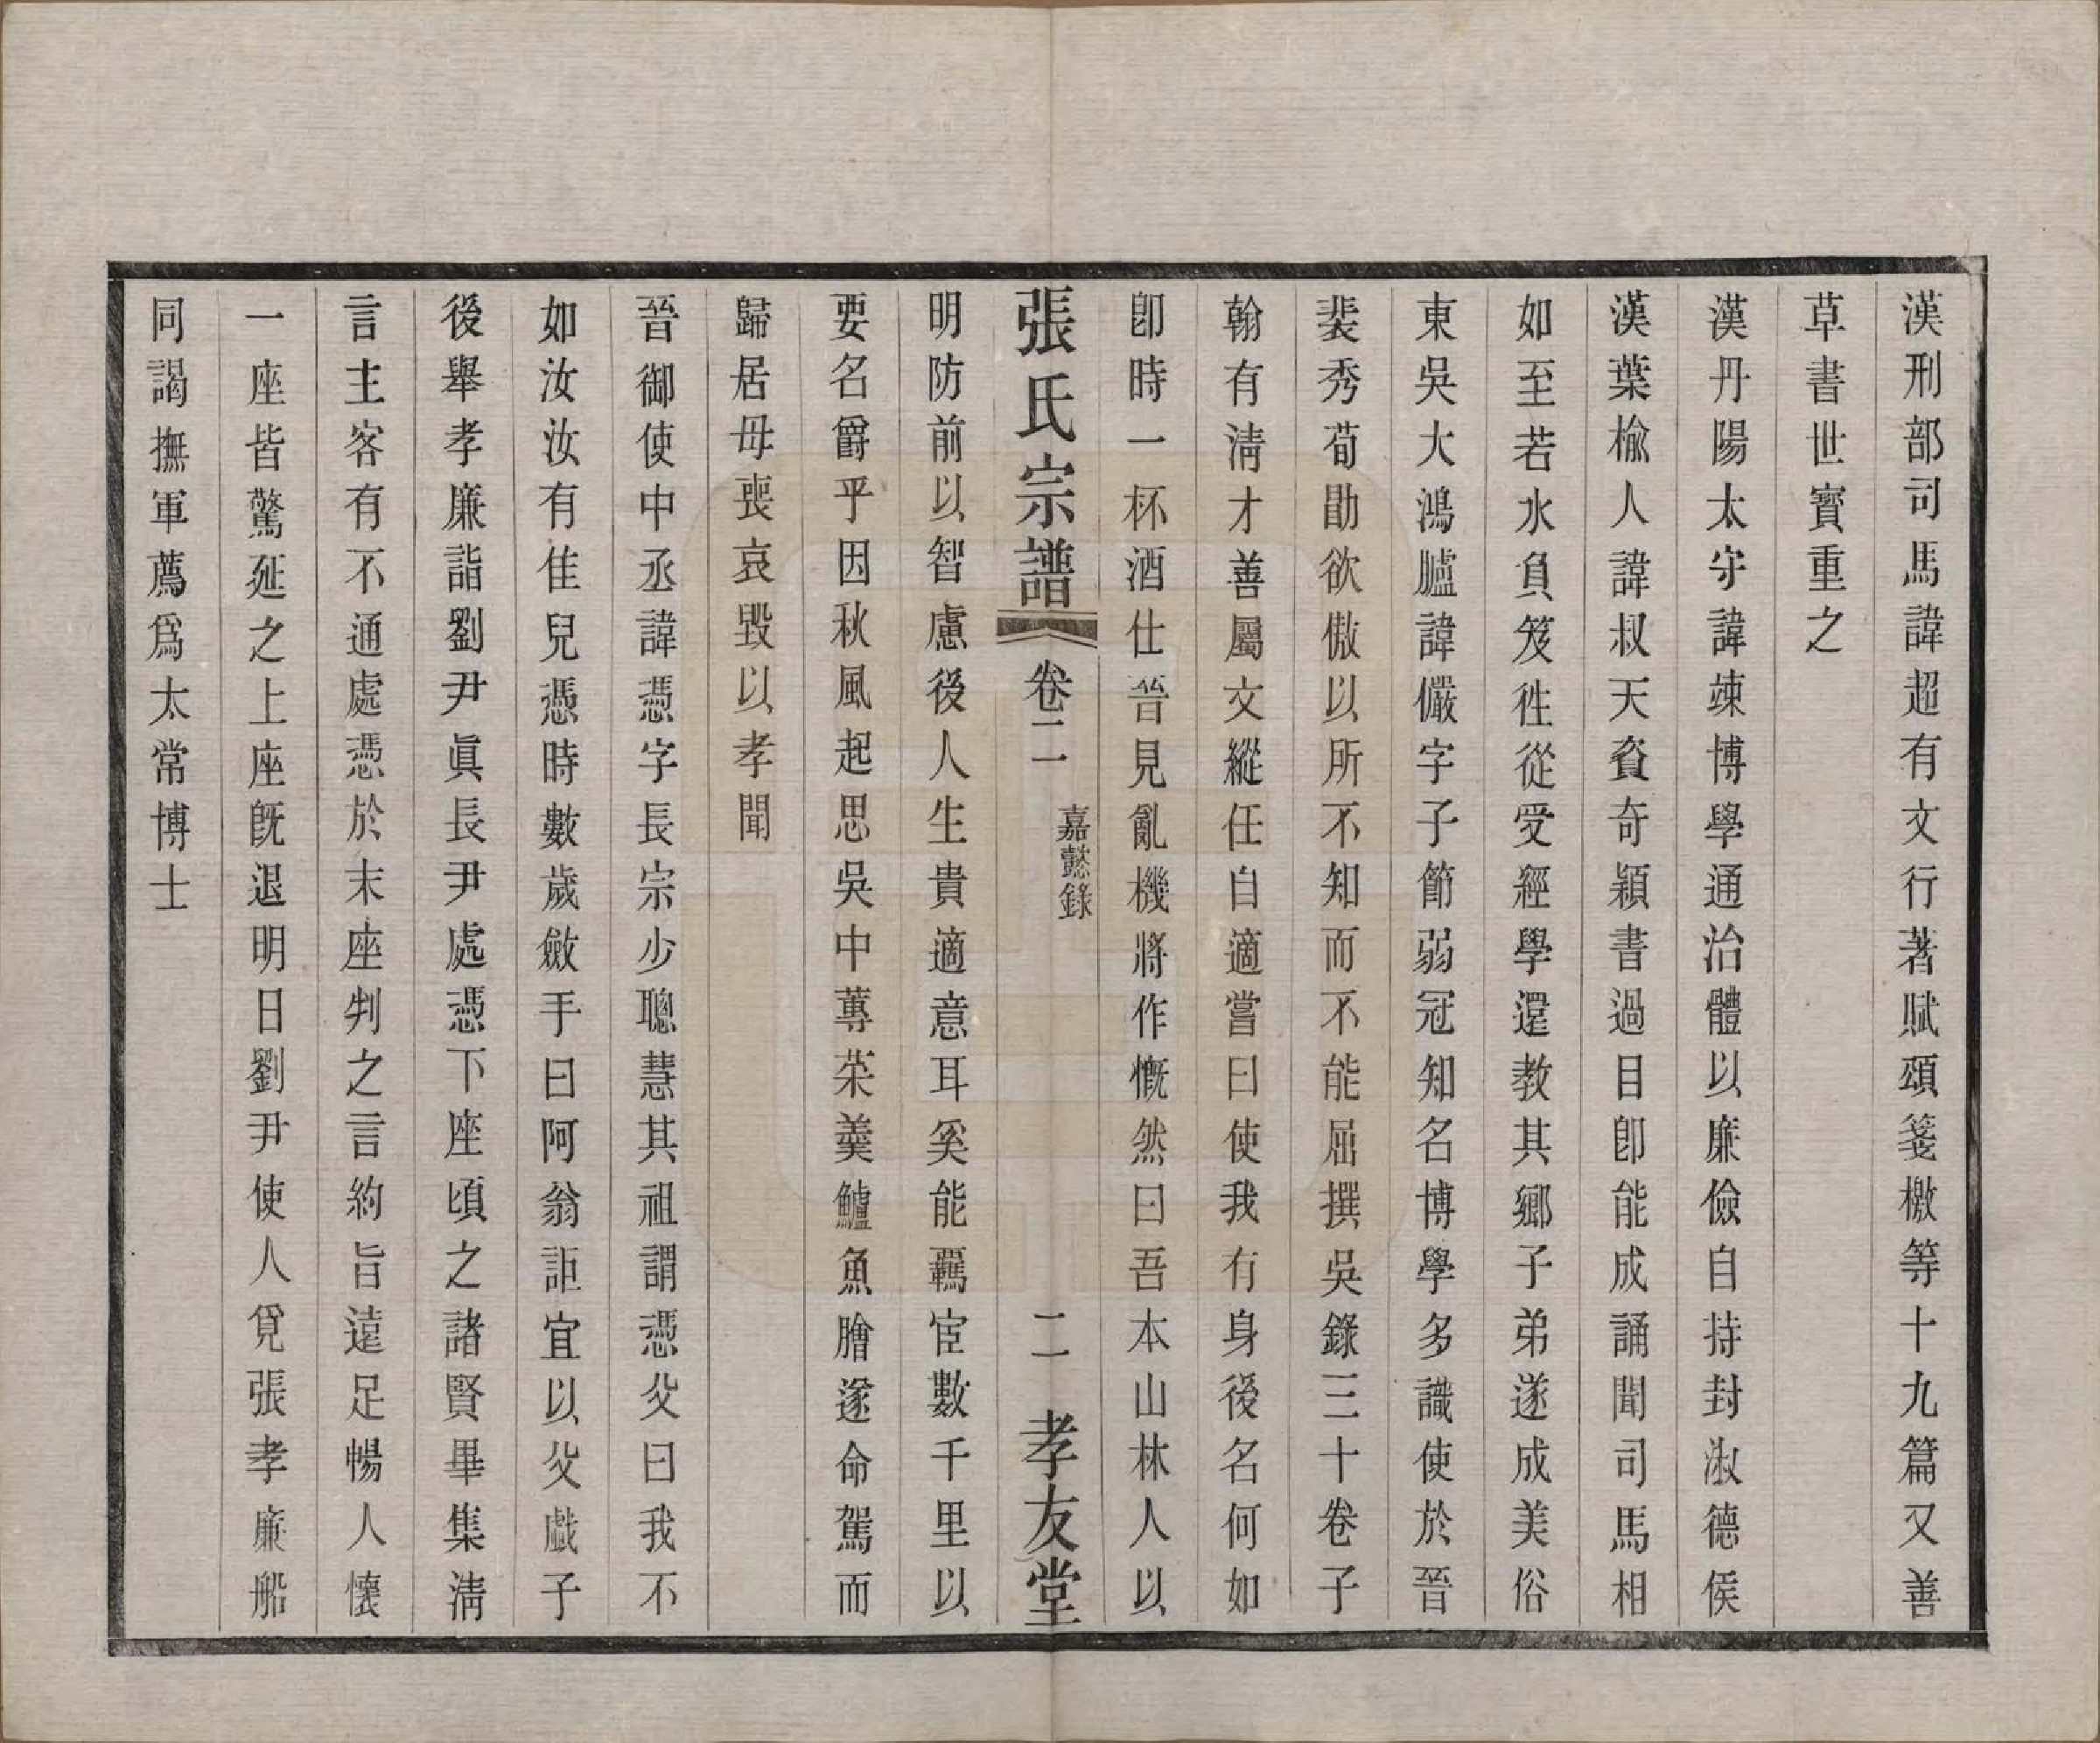 漢刑部司馬諱超有文行著賦頌箋檄等十九篇又善
草書世寳重之
漢丹陽太守諱竦博學通治體以廉儉自持封淑德侯
漢葉榆人諱叔天資奇穎書過目卽能成誦聞司馬相
如至若水負笈徃從受經學還教其鄉子弟遂成美俗
東吳大鴻臚諱儼字子節弱冠知名博學多識使於晉
裴秀荀勖欲傲以所不知而不能屈撰吳錄三十卷子
翰有淸才善屬文縱任自適嘗曰使我有身後名何如
卽時一杯酒仕晉見亂機將作慨然曰吾本山林人以
張氏宗譜 卷二 嘉懿錄 二 孝友堂
明防前以智慮後人生貴適意耳奚能羈宦數千里以
要名爵乎因秋風起思吳中蓴茱羹鱸魚膾遂命駕而
歸居母喪哀毀以孝聞
晉御使中丞諱憑字長宗少聰慧其祖謂憑父曰我不
如汝汝有佳兒憑時數歲斂手曰阿翁詎宜以父戱子
後舉孝廉詣劉尹眞長尹處憑下座頃之諸賢畢集淸
言主客有不通處憑於末座判之言約旨遠足暢人懷
一座皆驚延之上座旣退明日劉尹使人覓張孝廉船
同謁撫軍薦爲太常博士